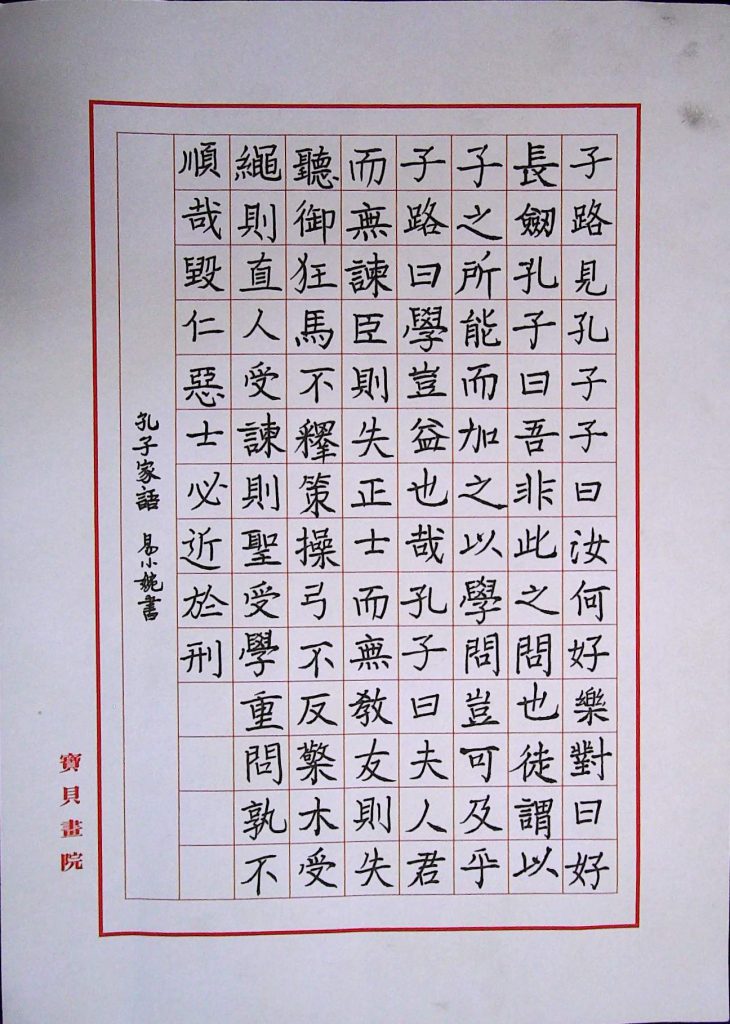 子路見孔子子曰汝何好樂對曰好
長劒孔子曰吾非此之問也徒謂以
子之所能而加之以學問豈可及乎
子路曰學豈益也哉孔子曰夫人君
而無諫臣則失正士而無教友則失
聽御狂馬不釋策操弓不反檠木受
繩則直人受諫則聖受學重問孰不
順哉毀仁惡士必近於刑
孔子家語 易小婉書
寶貝畫院